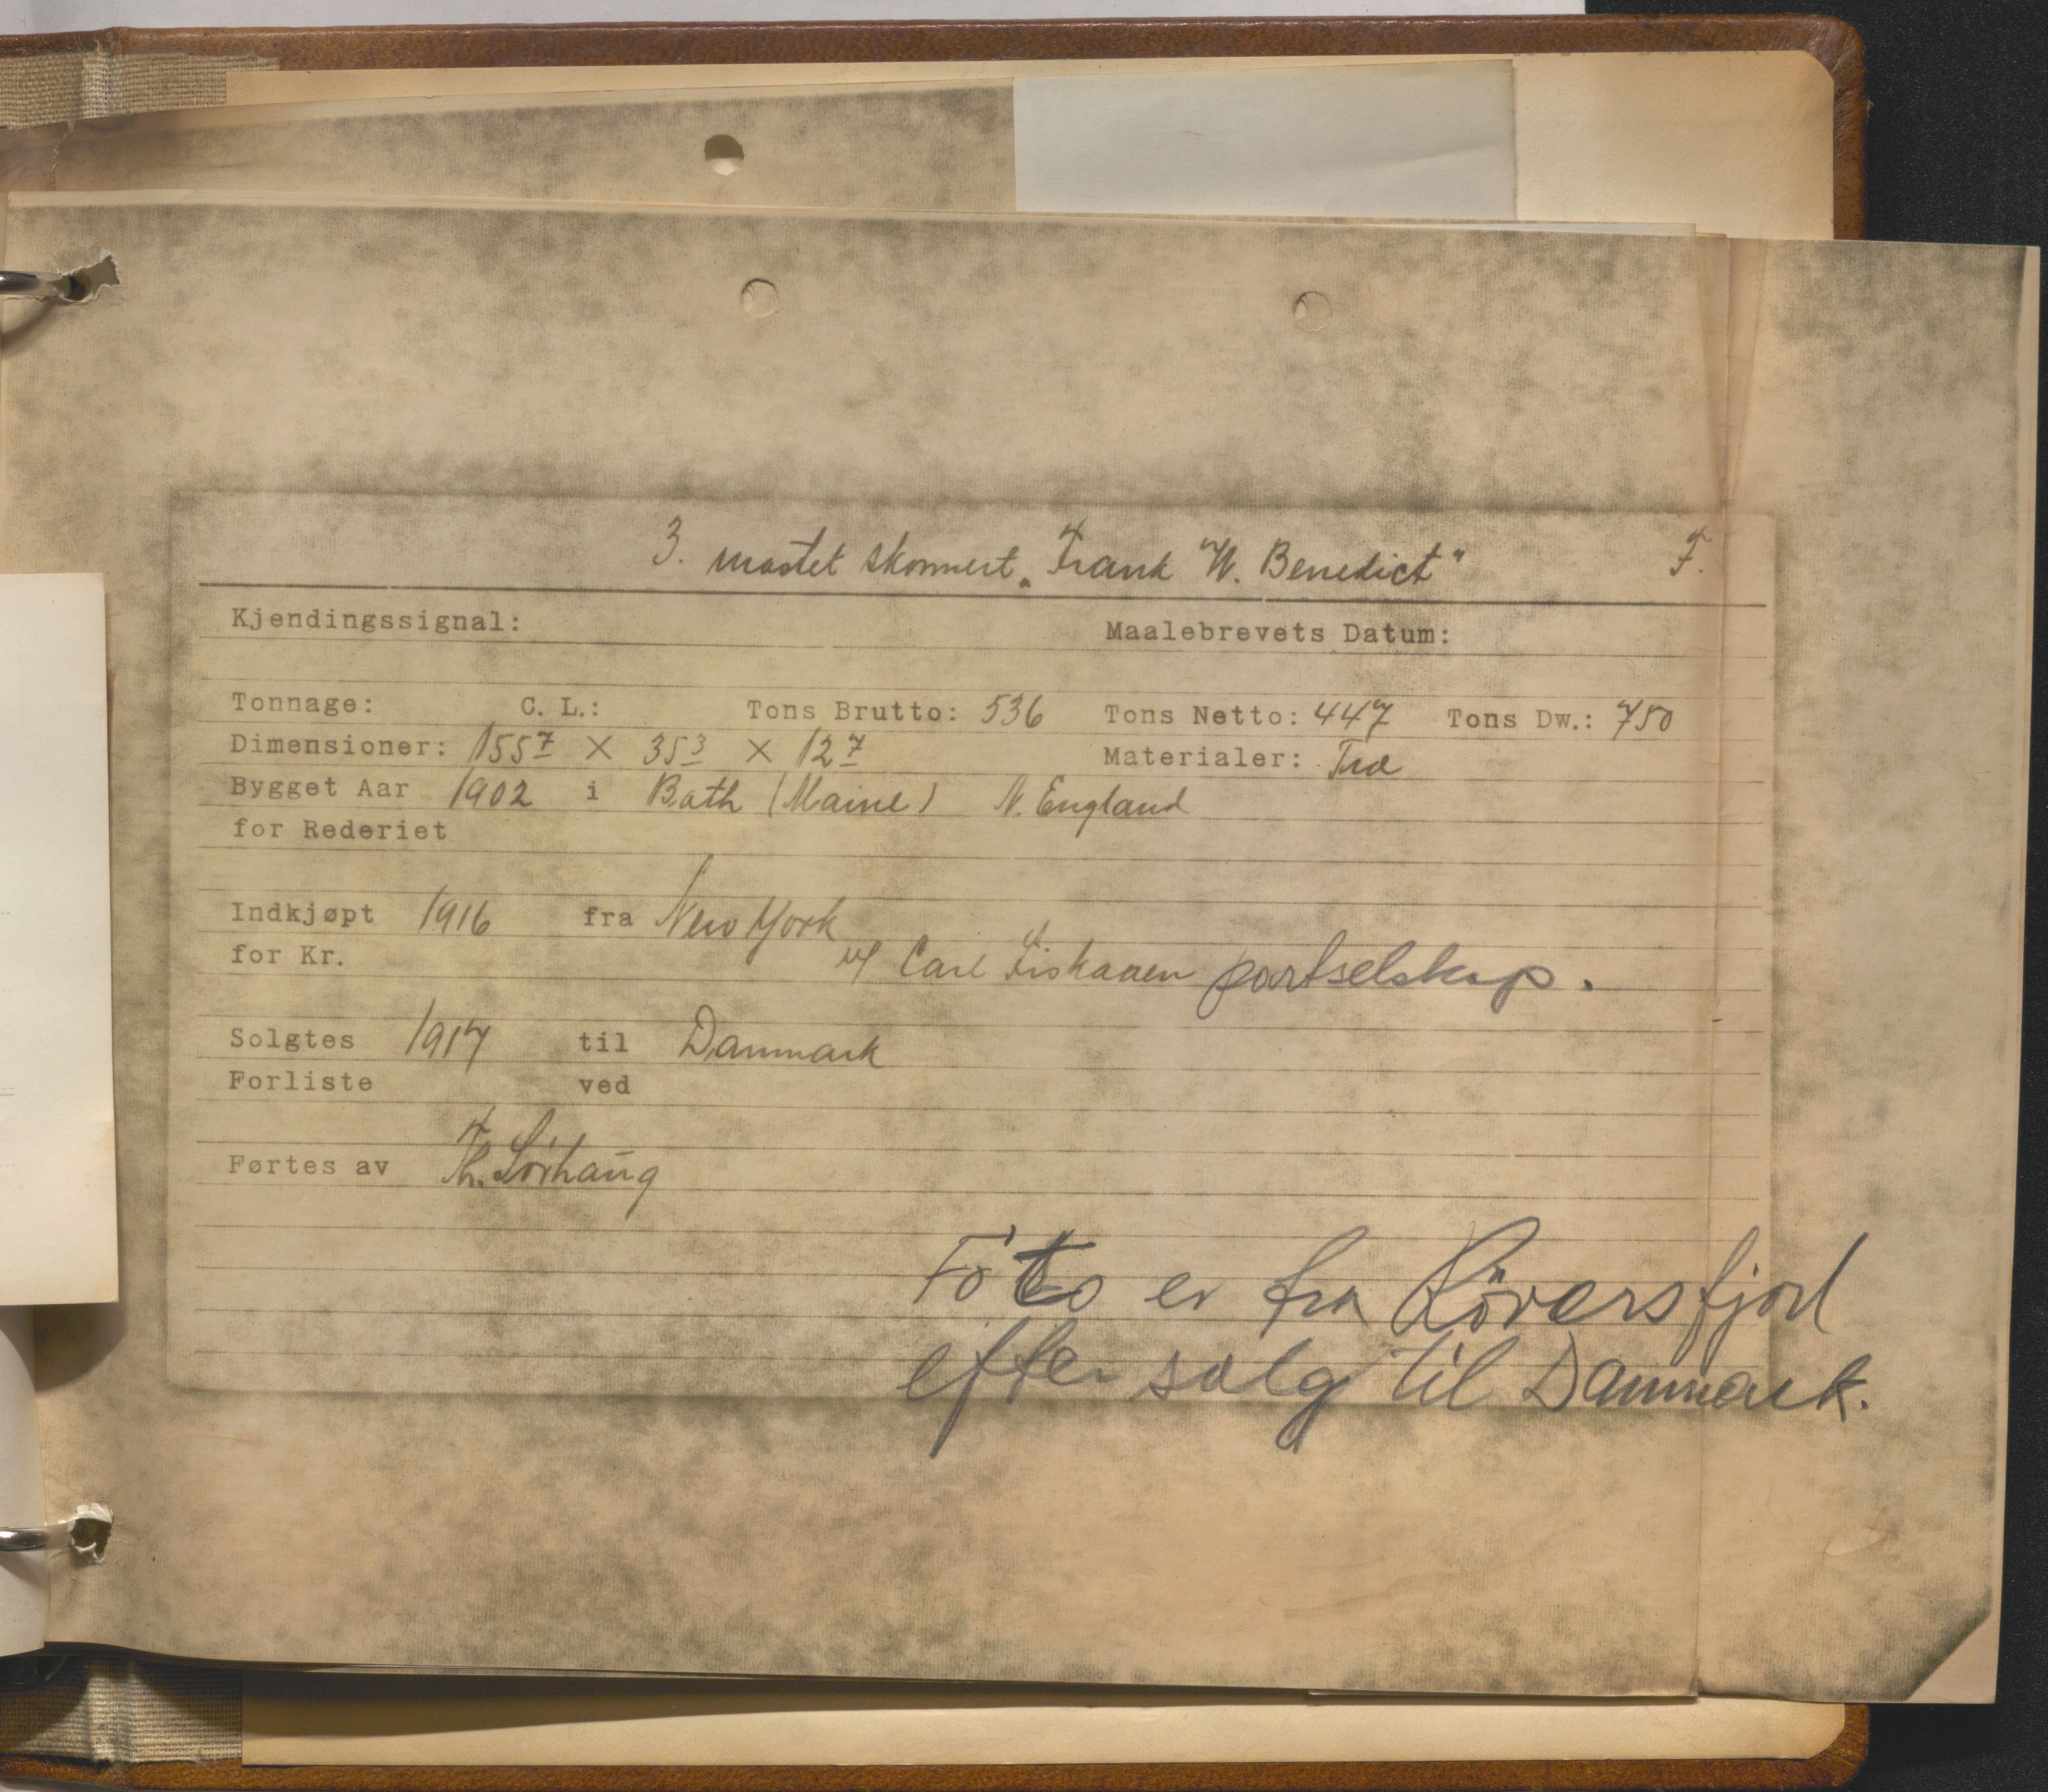 3. mastet skonnert „Frank W. Benedict" F.
Kjendingssignal: Maalebrevets Datum:
Tonnage: C. L.: Tons Brutto: 536 Tons Netto: 447 Tons Dw.: 750
Dimensioner: 155⁷ × 35³ × 12⁷ Materialer: Træ
Bygget Aar 1902 i Bath (Maine) N. England
for Rederiet
Indkjøpt 1916 fra New York
for Kr. v/ Carl Fiskaaen partselskap.
Solgtes 1917 til Danmark
Forliste ved
Førtes av Th. Sörhaug
Foto er fra Röversfjord
efter salg til Danmark.